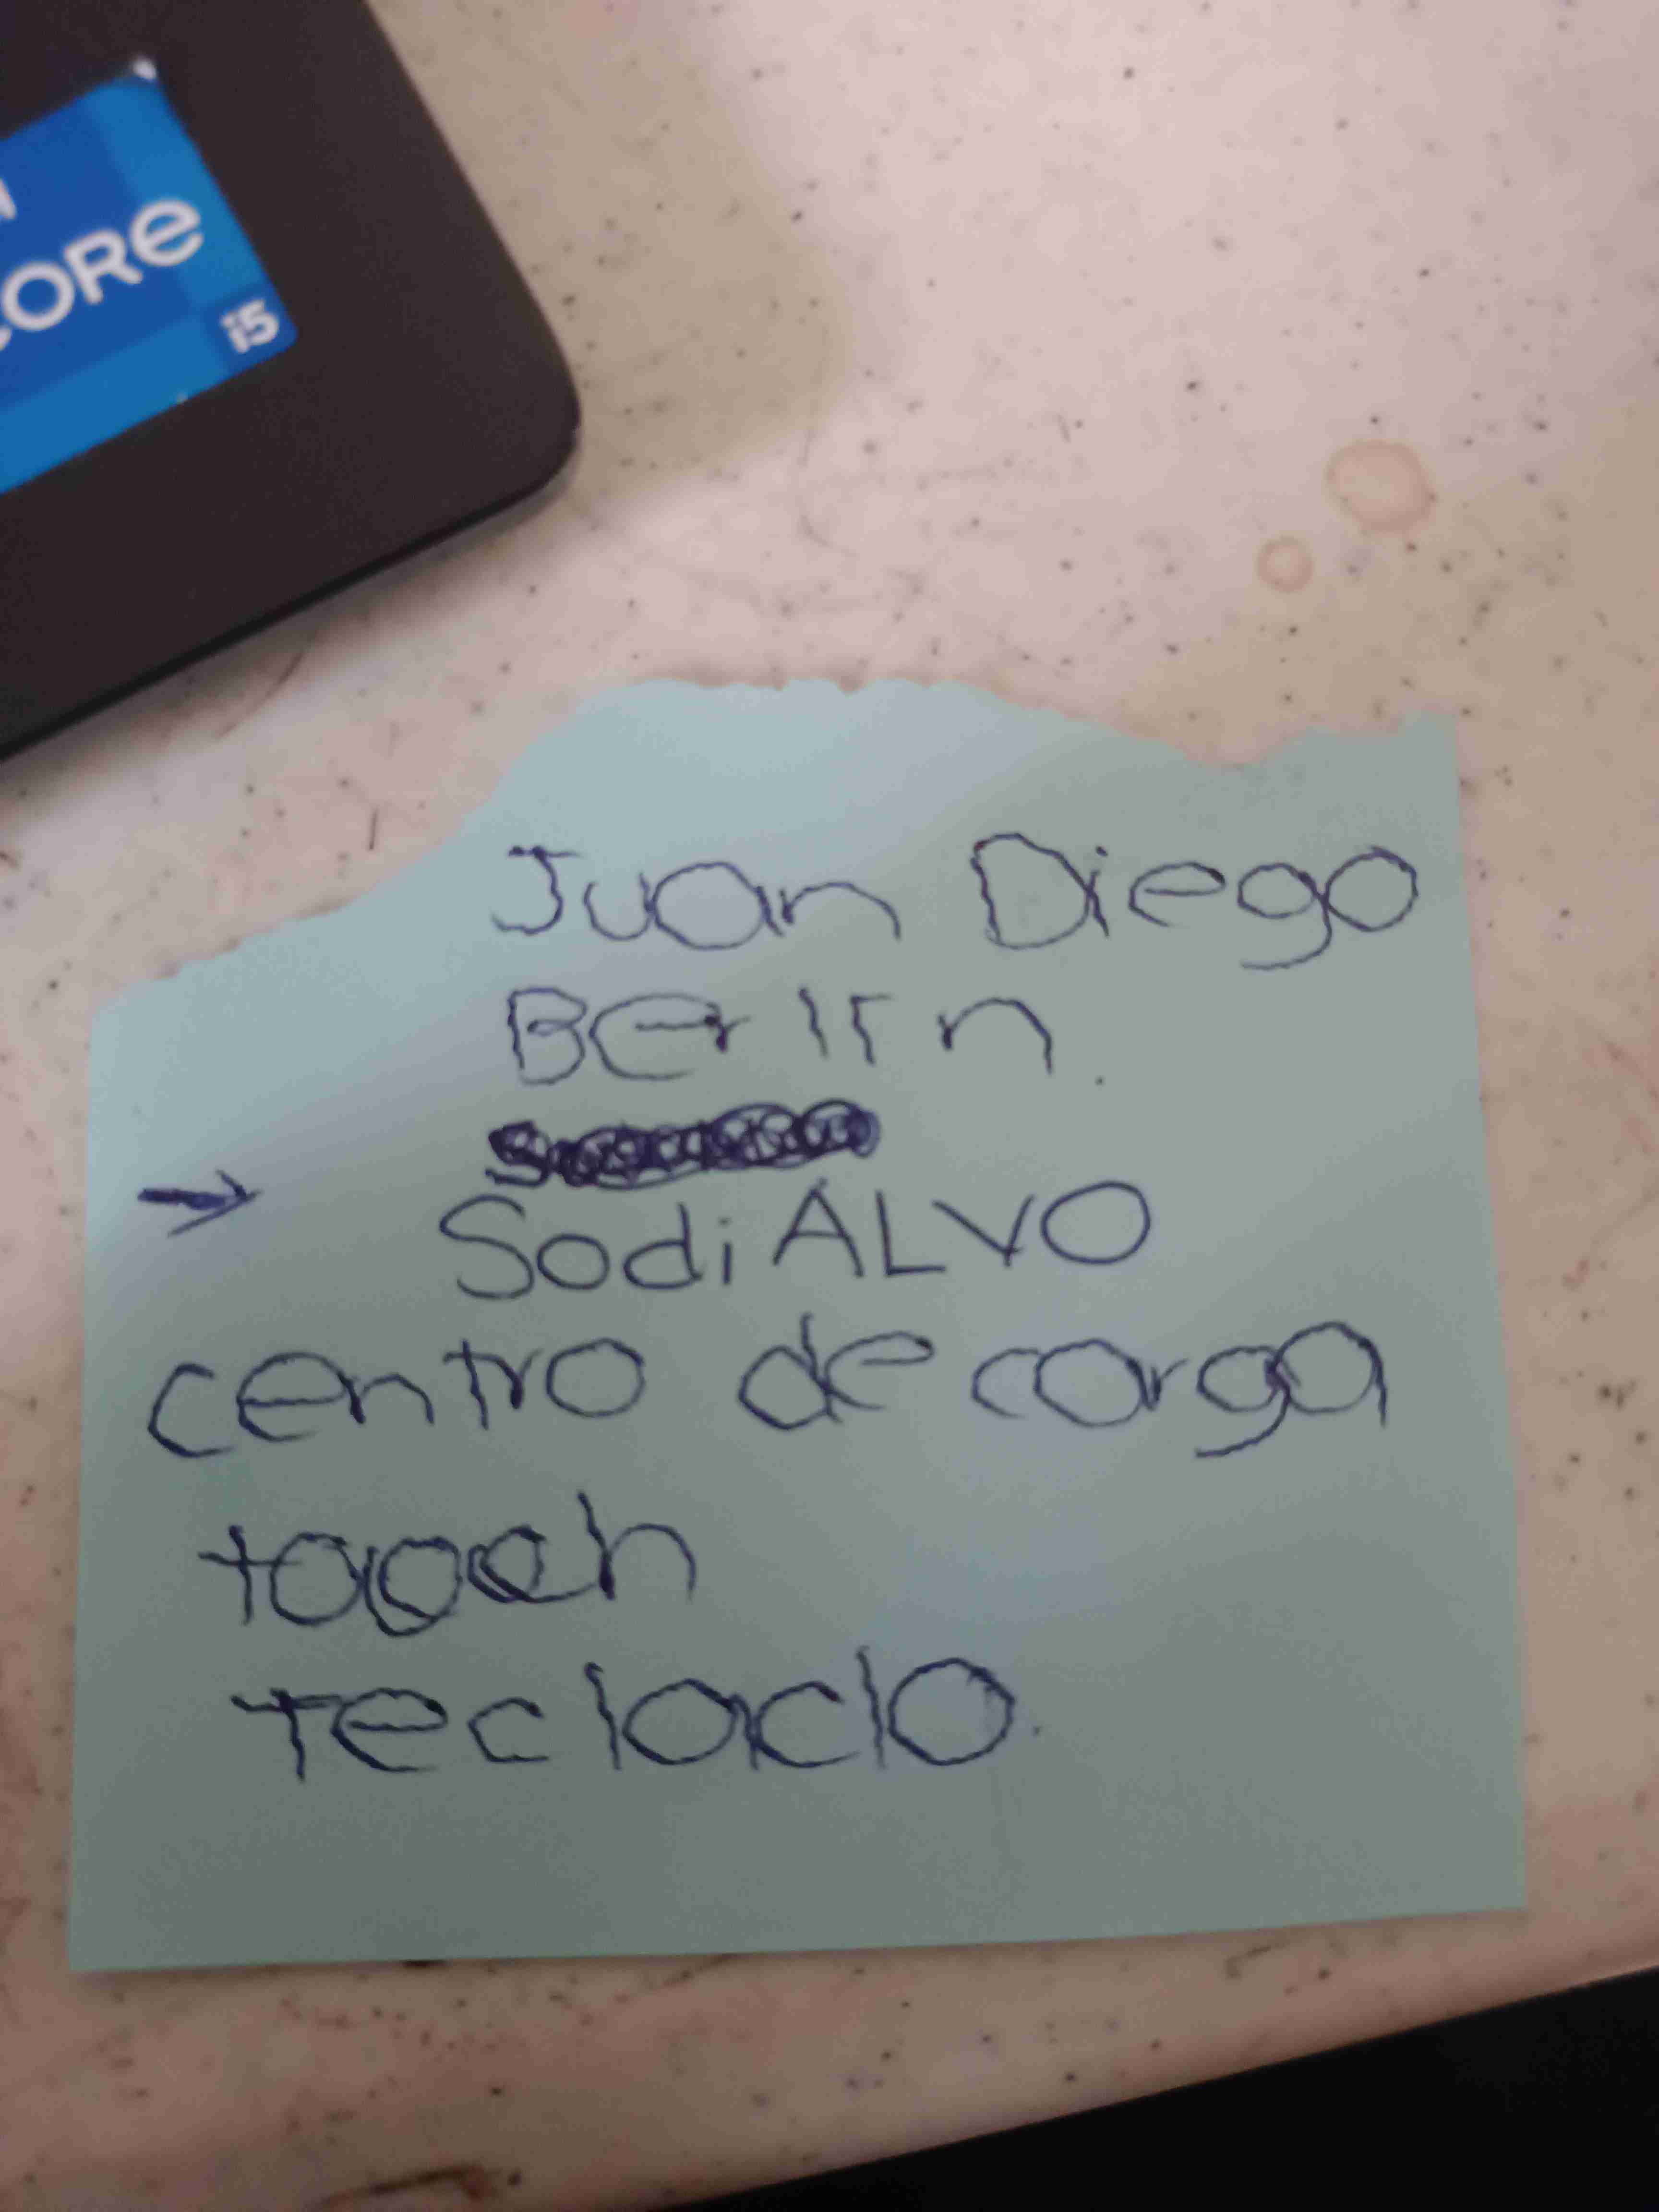 CORE
i5
Juan Diego
Berlin.
→
SodiALVO
centro de carga
touch
Teclado.